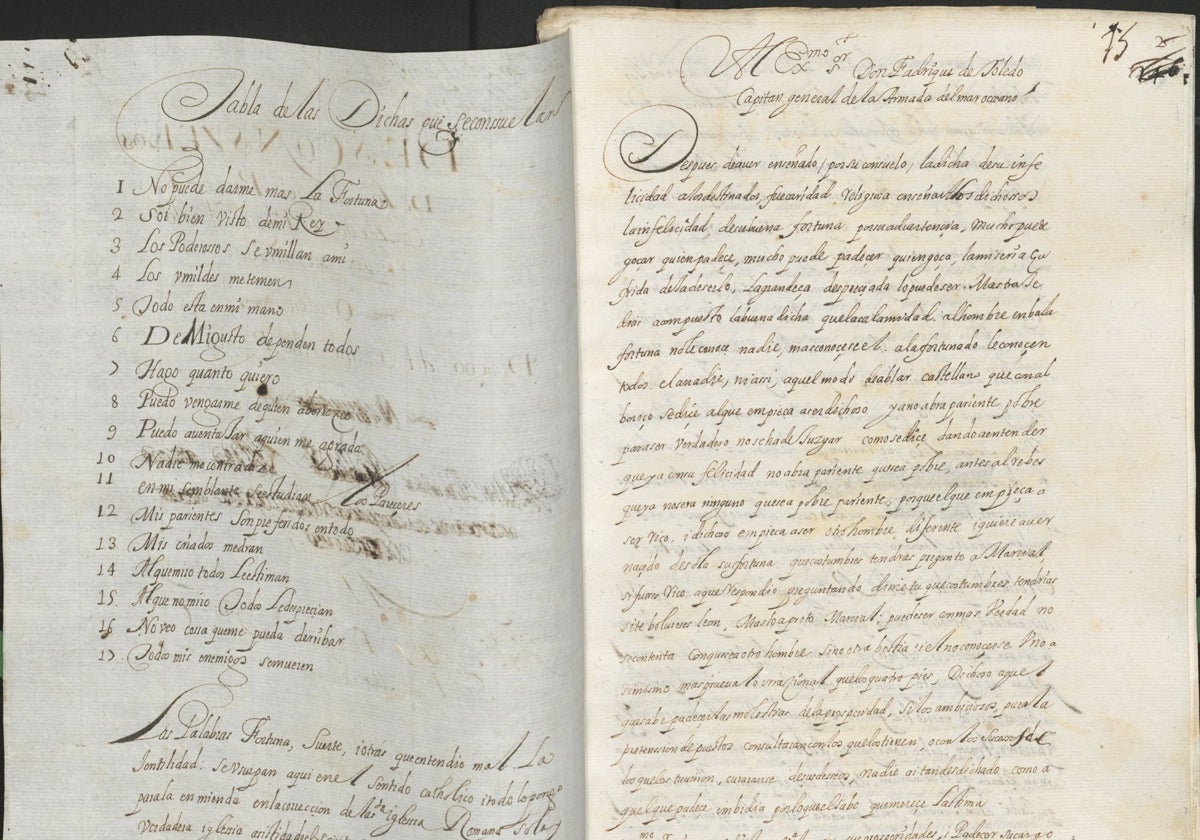 Tabla de las Dichas que se consuelan
1 No puede darme mas La Fortuna
2 Soi bien visto de mi Rey
3 Los Poderossos se vmillan ami
4 Los vmildes me temen
5 Todo esta en mi mano
6 De Mi gusto dependen todos
7 Hago quanto quiero
8 Puedo vengarme de quien aborrezco
9 Puedo auentajar a quien me agrada
10 Nadie me contradize
11 en mi semblante se estudian Los Pareceres
12 Mis parientes son preferidos en todo
13 Mis criados medran
14 Al que miro todos Le estiman
15 Al que no miro Todos Le desprecian
16 No veo cossa que me pueda derribar
17 Todos mis enemigos se mueren
Las Palabras Fortuna, Suerte, i otras que entendio mal La
Jentilidad: se vsurpan aqui en el sentido catholico i todo lo pongo
para la enmienda en la correccion de la s.ta iglesia Romana sola y
Verdadera iglesia asistida del
75
Al Ex.mo S.or Don Fadrique de Toledo
Capitan general de la Armada del mar oceano
Despues de auer enseñado, por su consuelo, la dicha de su infe
licidad a los destinados, fue caridad Religiosa enseñar a los dichosos
la infelicidad de su buena fortuna por su aduertencia, Mucho puede
goçar quien padeçe, mucho puede padecer quien goça, la miseria
de la deseilo, La grandeça despreciada lo puede ser. Mas
a compuesto la buena dicha que la calamidad. al hombre en baja
fortuna no le conoce nadie, mas conocese el. al afortunado le conocen
todos. el a nadie, ni a si, aquel modo de ablar castellano que con al
boroço se dice al que empieça a ser dichoso ya no abra pariente pobre
para ser verdadero no se ha de Juzgar como se dice dando a entender
que ya con su felicidad no abra pariente que sea pobre, antes al rebes
que ya no sera ninguno que sea pobre pariente, porque el que empieça a
ser rico, i dichoso empieça a ser otro hombre diferente i quiere auer
naçido de sola su fortuna que costumbres tendras pregunto a Marcial,
si fueras Rico, a que Respondio preguntando dime tu que costumbres tendrias
si te bolvieres leon, Mas lo apreto Marcial: puede ser en mas Verdad no
se contenta con que sea otro hombre sino otra bestia: i el no conocerse Vno a
si mismo mas graua lo irracional que los quatro pies, Dichoso aquel
que sabe padecer las molestias de la prosperidad, Si los ambiciosos, para la
pretension de puestos consultaran con los que los tienen, o con los sucesos de
los que los tuuieron, curaranse de sus deseos, nadie ai tan desdichado como a
quel que padece imbidia por lo que el sabe que merece Lastima.